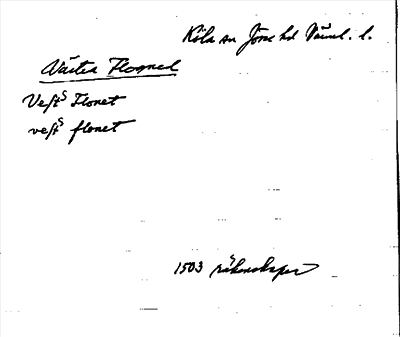 Köla sn Jösse hd Värml. l.
Västra Flognet
Vefts Flonet
vefts flonet
1503 räkenskaper